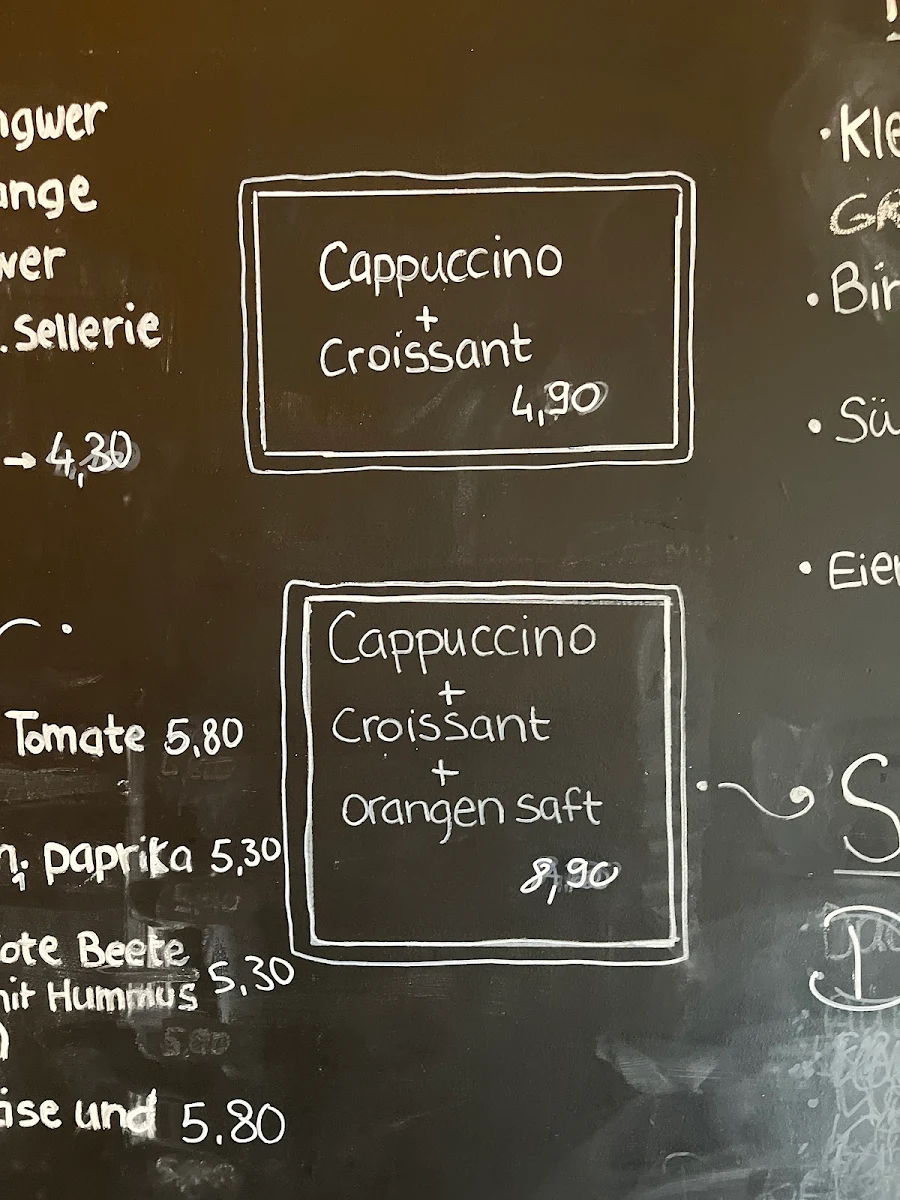 ngwer
ange
wer
. Sellerie
→ 4,30
Tomate 5,80
n; paprika 5,30
ote Beete
mit Hummus 5,30
)
äse und 5.80
Cappuccino
+
Croissant
4,90
Cappuccino
+
Croissant
+
orangen saft
8,90
• Kle
GR
• Bir
• Sü
• Eier
S
D